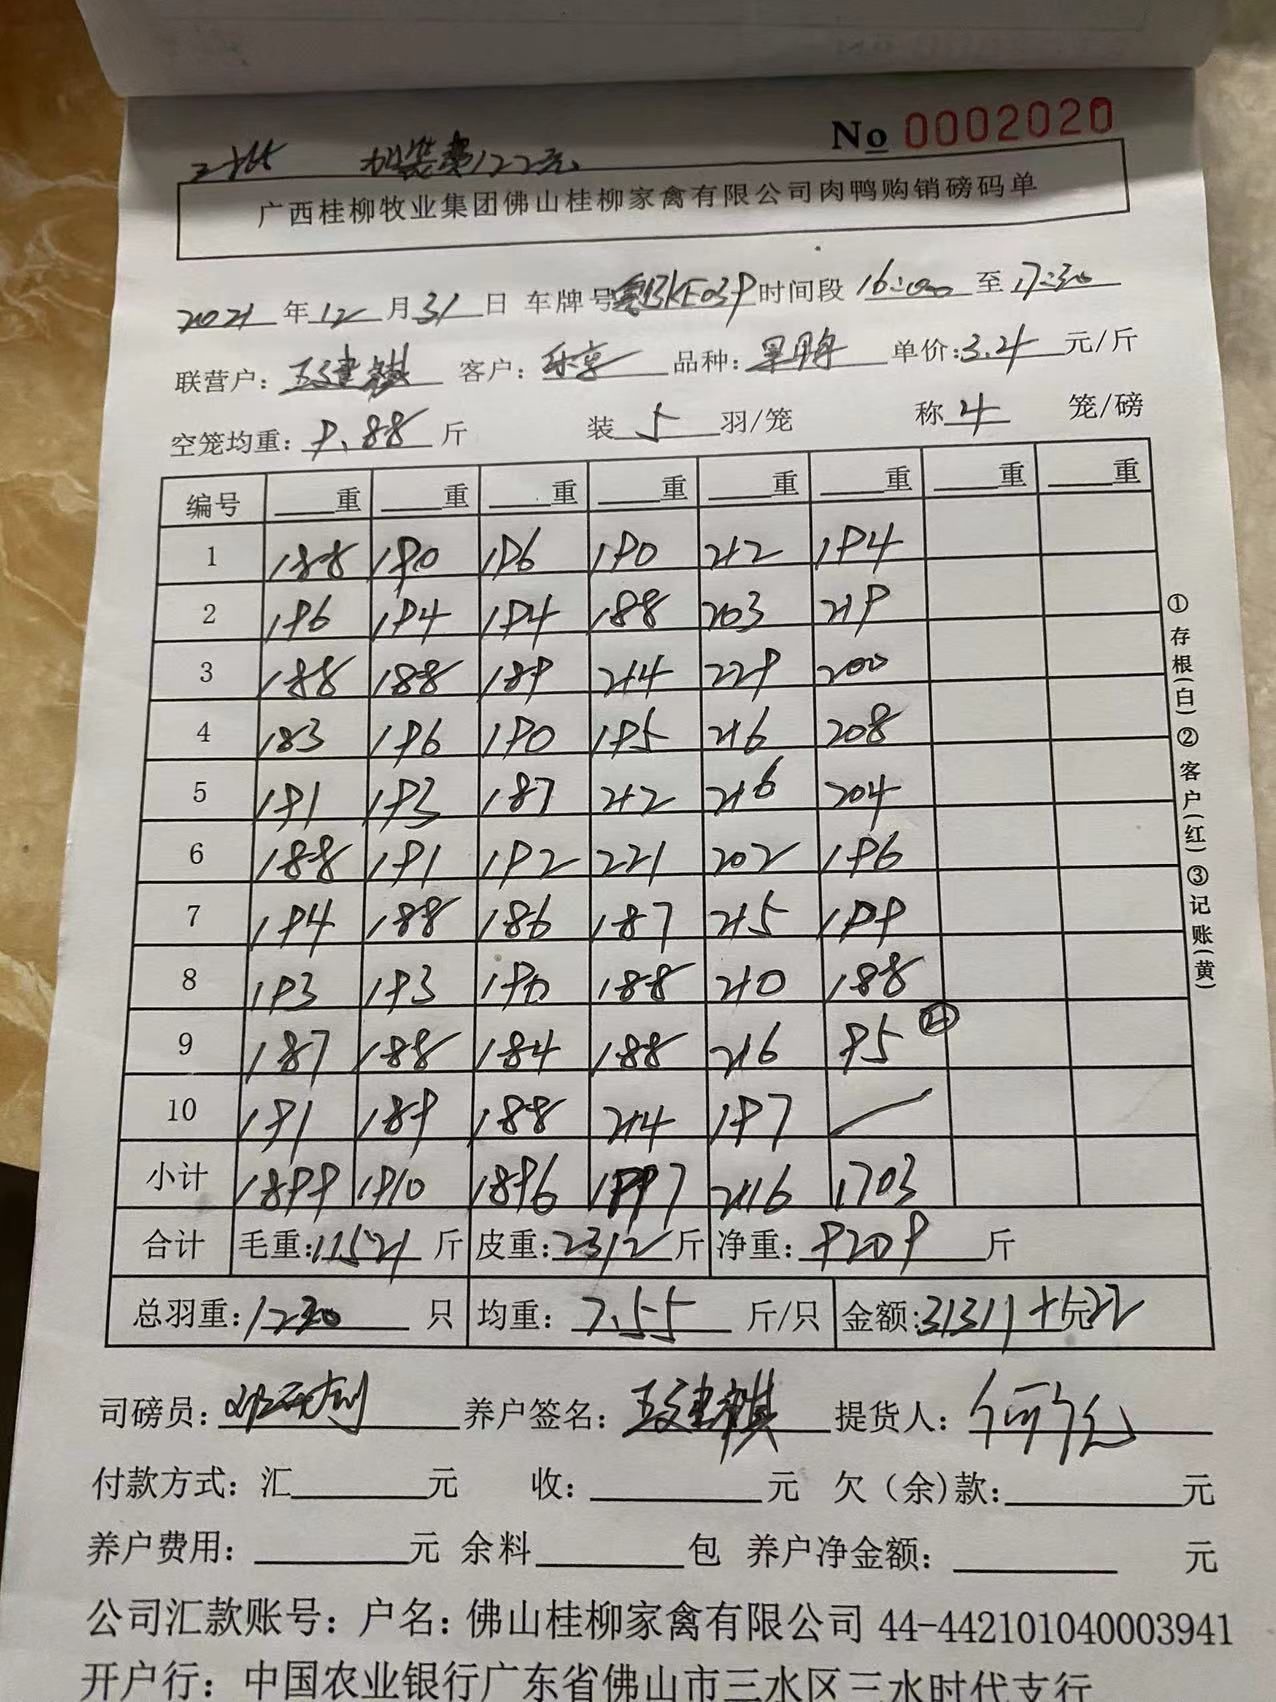 No 0002020
加装费122元
广西桂柳牧业集团佛山桂柳家禽有限公司肉鸭购销磅码单
2021年12月31日 车牌号 粤BKE039 时间段 16:00 至 17:30
联营户: 客户: 乐享 品种: 单价:3.4 元/斤
空笼均重: 9.88 斤 装 5 羽/笼 称 4 笼/磅
编号 重 重 重 重 重 重 重 重
1 188 190 196 190 212 194
2 196 194 194 188 203 219
3 188 188 189 214 229 200
4 183 196 190 195 216 208
5 191 193 187 212 216 204
6 188 191 192 221 202 196
7 194 188 186 187 215 199
8 193 193 190 188 210 188
9 187 188 184 188 216 95 ②
10 191 189 188 214 197
小计 1899 1910 1896 1997 2116 1703
合计 毛重:11521 斤 皮重:2312 斤 净重: 9209 斤
总羽重:1220 只 均重: 7.55 斤/只 金额:31311+122元
司磅员: 养户签名: 提货人:
付款方式: 汇 元 收: 元 欠(余)款: 元
养户费用: 元 余料 包 养户净金额: 元
公司汇款账号: 户名: 佛山桂柳家禽有限公司 44-442101040003941
开户行: 中国农业银行广东省佛山市三水区三水时代支行
①存根(白)②客户(红)③记账(黄)